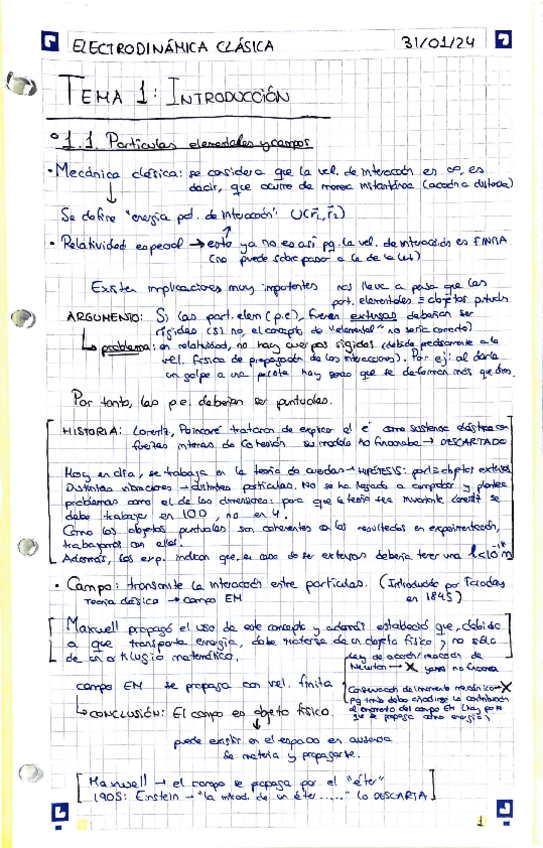 ELECTRODINÁMICA CLÁSICA 31/01/24
TEMA 1: INTRODUCCIÓN
1.1. Partículas elementales y campos
· Mecánica clásica: se considera que la vel. de interacción es ∞, es
decir, que ocurre de manera instantánea (acción a distancia)
Se define "energía pot. de interacción" U(r⃗₁, r⃗₂)
· Relatividad especial → esto ya no es así pq. la vel. de interacción es FINITA
(no puede sobrepasar a la de la luz)
Existen implicaciones muy importentes nos lleva a pensar que las
part. elementales ≡ objetos puntuales.
ARGUMENTO: Si las part. elem (p.e), fueran extensas deberían ser
rígidas (si no, el concepto de "elemental" no sería correcto)
problema: en relatividad, no hay cuerpos rígidos (debido precisamente a la
vel. física de propagación de las interacciones). Por ej: al darle
un golpe a una pelota hay zonas que se deforman más que otras.
Por tanto, las p.e. deberían ser puntuales.
HISTORIA: Lorentz, Poincaré trataron de explicar el e⁻ como sustancia elástica con
fuerzas internas de cohesión su modelo no funcionaba → DESCARTADO
Hoy en día, se trabaja en la teoría de cuerdas → HIPÓTESIS: part ≡ objetos extensos
Distintas vibraciones → distintas partículas. No se ha llegado a comprobar y plantea
problemas como el de las dimensiones: para que la teoría sea invariante Lorentz se
debe trabajar en 10D, no en 4.
Como los objetos puntuales son coherentes con los resultados en experimentación,
trabajamos con ellos.
Además, los exp. indican que, en caso de ser extensas debería tener una l<10⁻¹⁸ m
· Campo: transmite la interacción entre partículas. (Introducido por Faraday
Teoría clásica → campo EM en 1845)
Maxwell propagó el uso de este concepto y además estableció que, debido
a que transporta energía, debe tratarse de un objeto físico y no sólo
de un artilugio matemático.
Ley de acción/reacción de
Newton → X ya no funciona
campo EM se propaga con vel. finita
Conservación del momento mecánico → X
pq. tmb debo añadirse la contribución
al momento del campo EM (hay parte
que se propaga como energía)
CONCLUSIÓN: El campo es objeto físico
puede existir en el espacio en ausencia
de materia y propagarse.
Maxwell → el campo se propaga por el "éter"
1905: Einstein → "la introd. de un éter ......" lo DESCARTA
1